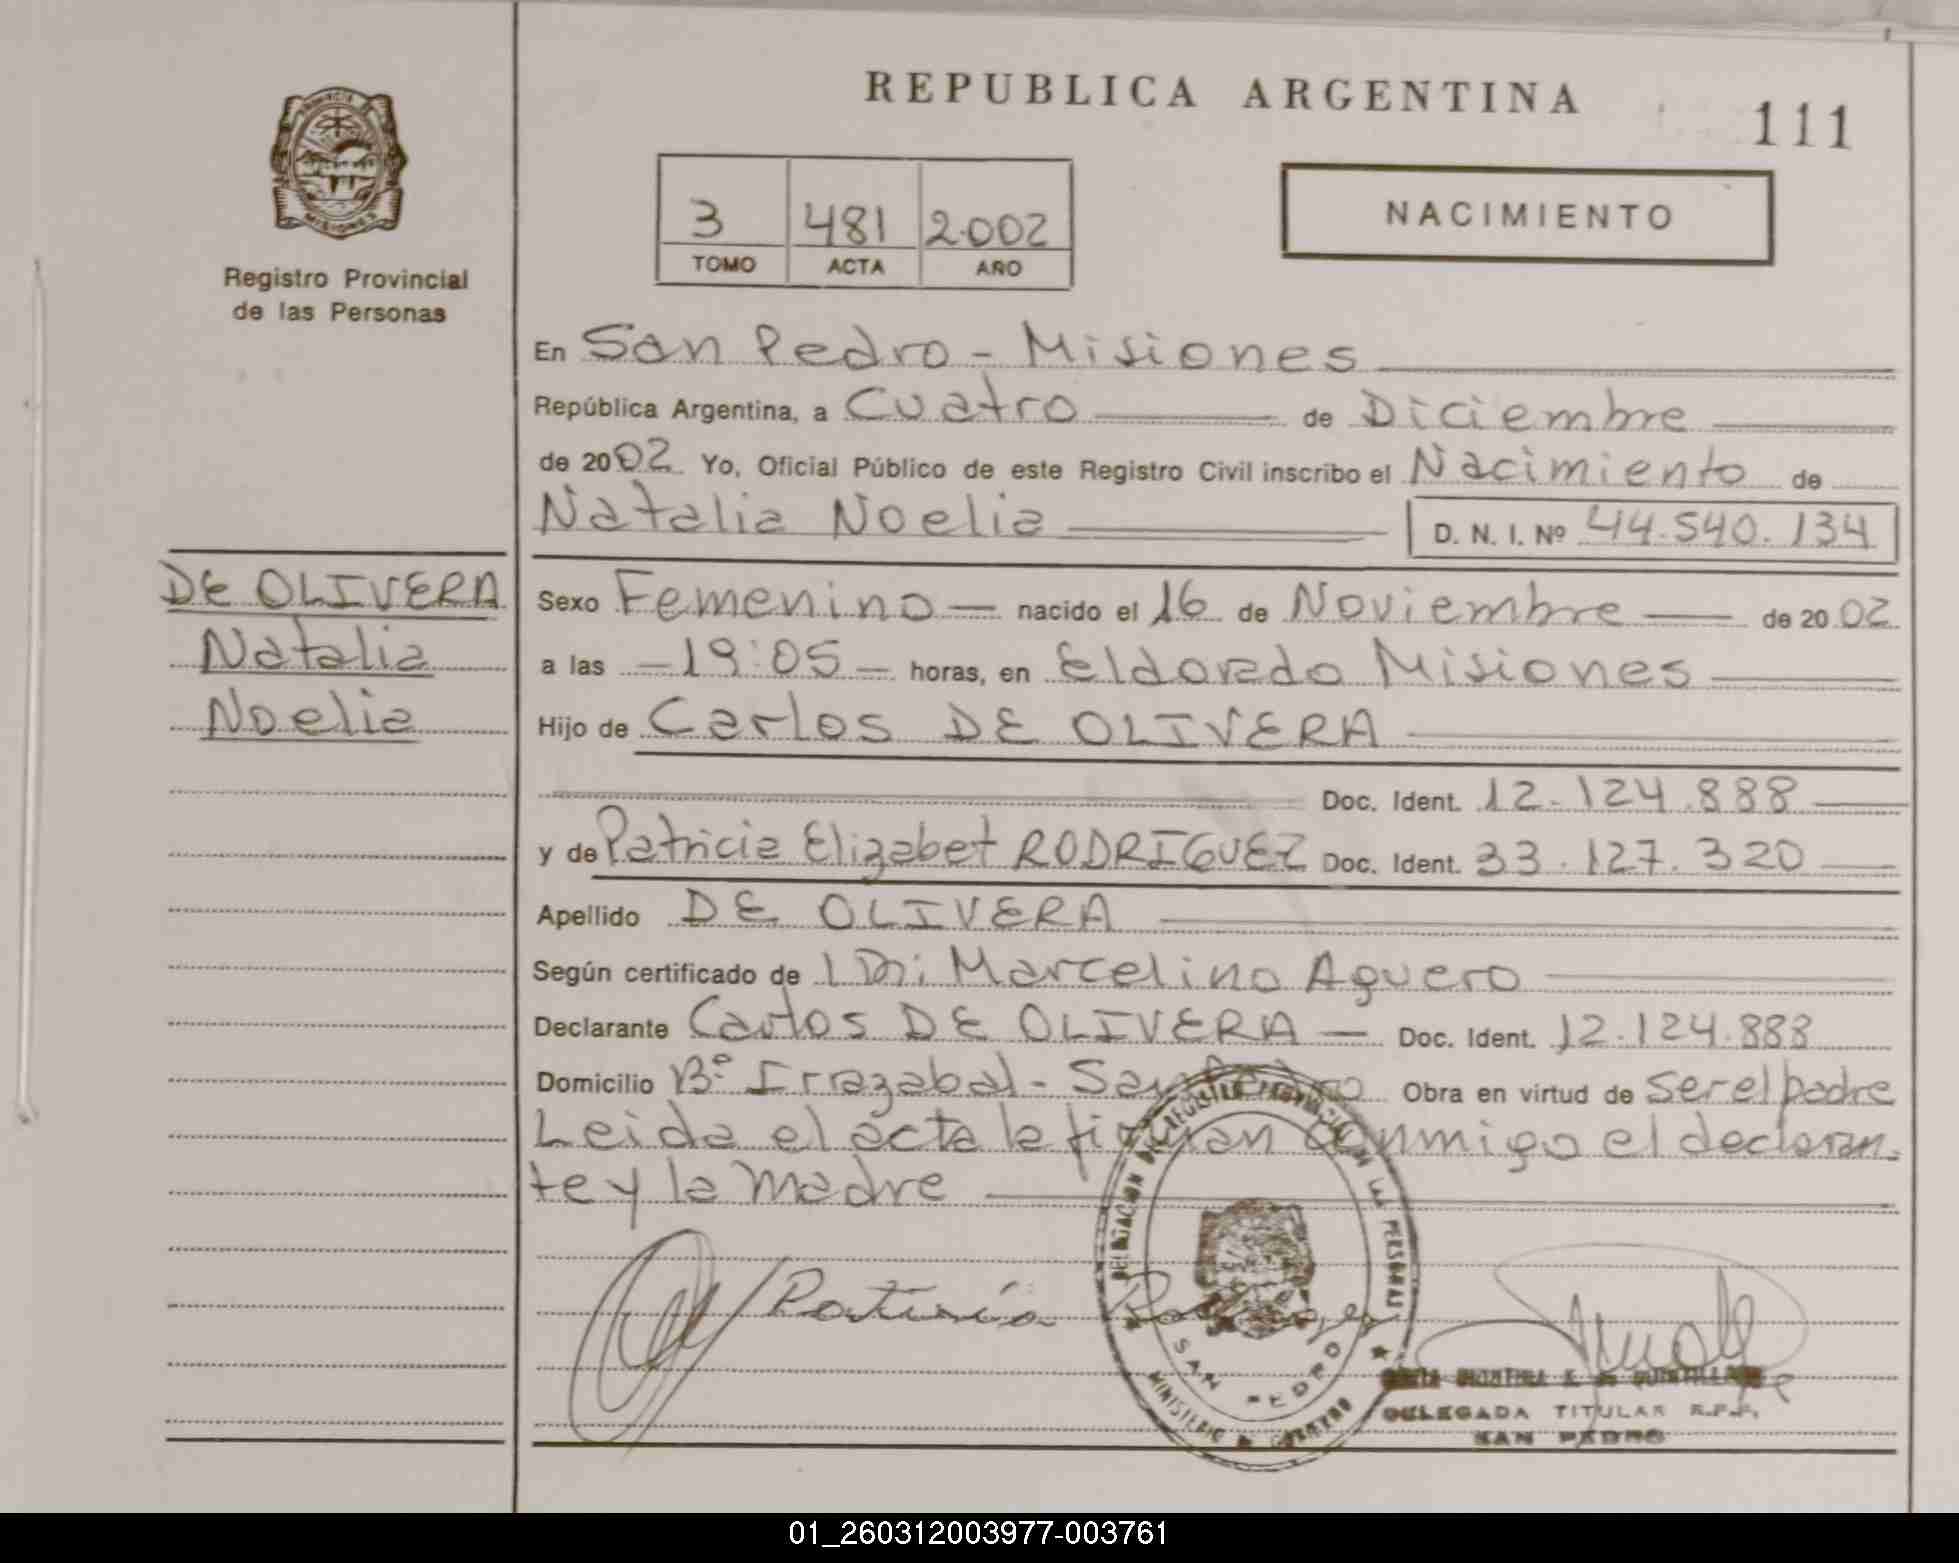 REPUBLICA ARGENTINA
111
3 481 2.002
TOMO ACTA AÑO
NACIMIENTO
MISIONES
Registro Provincial
de las Personas
En San Pedro - Misiones
República Argentina, a Cuatro de Diciembre
de 2002 Yo, Oficial Público de este Registro Civil inscribo el Nacimiento de
Natalia Noelia D. N. I. Nº 44.540.134
DE OLIVERA
Natalia
Noelia
Sexo Femenino nacido el 16 de Noviembre de 2002
a las -19:05- horas, en Eldorado Misiones
Hijo de Carlos DE OLIVERA
Doc. Ident. 12.124.888
y de Patricia Elizabet RODRIGUEZ Doc. Ident. 33.127.320
Apellido DE OLIVERA
Según certificado de Marcelino Aguero
Declarante Carlos DE OLIVERA Doc. Ident. 12.124.888
Domicilio Bº Irrazabal - San Pedro Obra en virtud de ser el padre
Leida el acta la firman conmigo el declaran-
te y la madre
Patricia Rodriguez
SAN PEDRO
DELEGADA TITULAR R.P.P.
SAN PEDRO
01_260312003977-003761